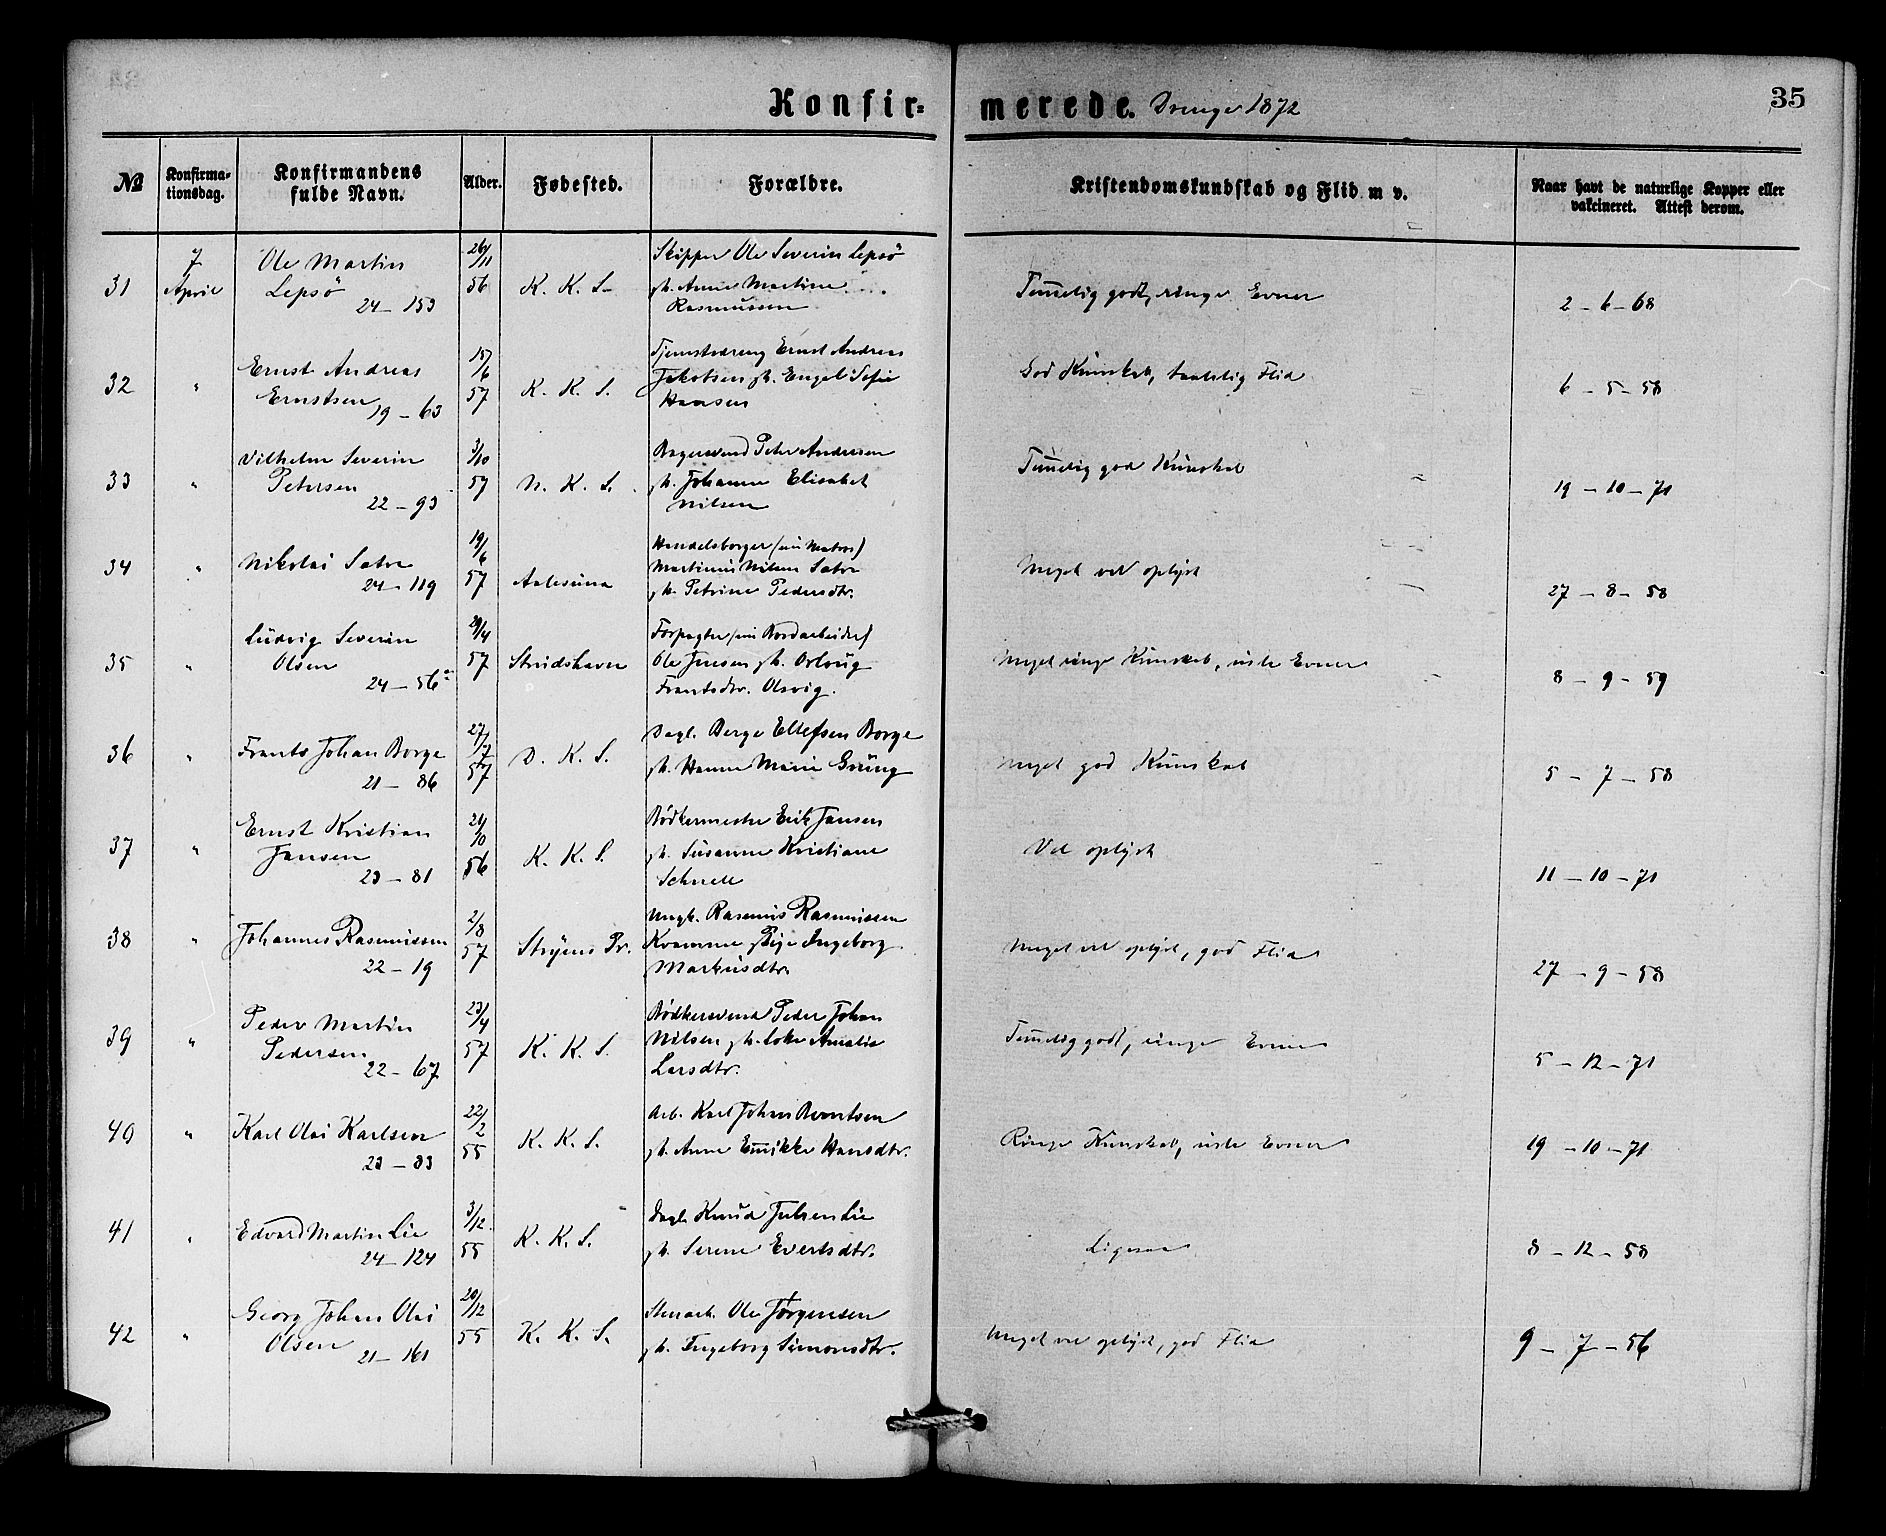 Konfirmerede. Drenge 1872
35
№
Konfirmationsdag.
Konfirmandens fulde Navn.
Alder.
Fødested.
Forældre.
Kristendomskundskab og Flid m v.
Naar havt de naturlige Kopper eller vakcineret. Attest derom.
31
7 April
Ole Martin
Lepsö
24 - 153
26/11 56
K. K. S.
Skipper Ole Severin Lepsö
gh. Anne Martine
Rasmussen
Temmelig godt, ringe Evner
2 - 6 - 68
32
"
Ernst Andreas
Ernstsen
19 - 63
15/6 57
K. K. S.
Tjenestedreng Ernst Andreas
Jakobsen gh. Engel Sofie
Hansen
God Kunskab, Flid
6 - 5 - 58
33
"
Vilhelm Severin
Petersen
22 - 93
3/10 57
N. K. S.
Bagersvend Peter Andersen
gh. Johanne Elisabet
Nilsen
Temmelig god Kunskab
19 - 10 - 71
34
"
Nikolai Satre
24 - 119
19/6 57
Aalesund
Handelsborger (nu Matros)
Martinus Nilsen Satre
gh. Petrine Pedersdtr.
Meget vel oplyst
27 - 8 - 58
35
"
Ludvig Severin
Olsen
24 - 56
29/4 57
Strudshavn
Forpagter (nu Bordarbeider)
Ole Jensen gh. Ortoug
Frantsdtr. Olsvig.
Meget ringe Kunskab, Evner
8 - 9 - 59
36
"
Frants Johan Borge
21 - 86
27/7 57
D. K. S.
Dagl. Berge Ellefsen Borge
gh. Hanne Marie Grüng
Meget god Kunskab
5 - 7 - 58
37
"
Ernst Kristian
Jansen
23 - 81
21/10 56
K. K. S.
Bödkermester Erik Jansen
gh. Susanne Kristiane
Schnell
Vel oplyst
11 - 10 - 71
38
"
Johannes Rasmussen
22 - 19
2/8 57
Stryens Pr.
Ungk. Rasmus Rasmussen
Kvamme Pige Ingeborg
Markusdtr.
Meget vel oplyst, god Flid
27 - 9 - 58
39
"
Peder Martin
Pedersen
22 - 67
23/4 57
K. K. S.
Bödkersvend Peder Johan
Nilsen gh. Amalie
Larsdtr.
Temmelig godt, ringe Evner
5 - 12 - 71
40
"
Karl Olai Karlsen
23 - 83
22/2 55
K. K. S.
Arb. Karl Johan Berntsen
gh. Anne Emikke Hansdtr.
Ringe Kunskab, Evner
19 - 10 - 71
41
"
Edvard Martin Lie
24 - 124
3/12 55
K. K. S.
Dagl. Knud Julsen Lie
gh. Serene Evertsdtr.
Ligesaa
8 - 12 - 58
42
"
Georg Johan Olai
Olsen
21 - 161
20/12 55
K. K. S.
Stenarb. Ole Jörgensen
gh. Ingeborg Simonsdtr.
Meget vel oplyst, god Flid
9 - 7 - 56